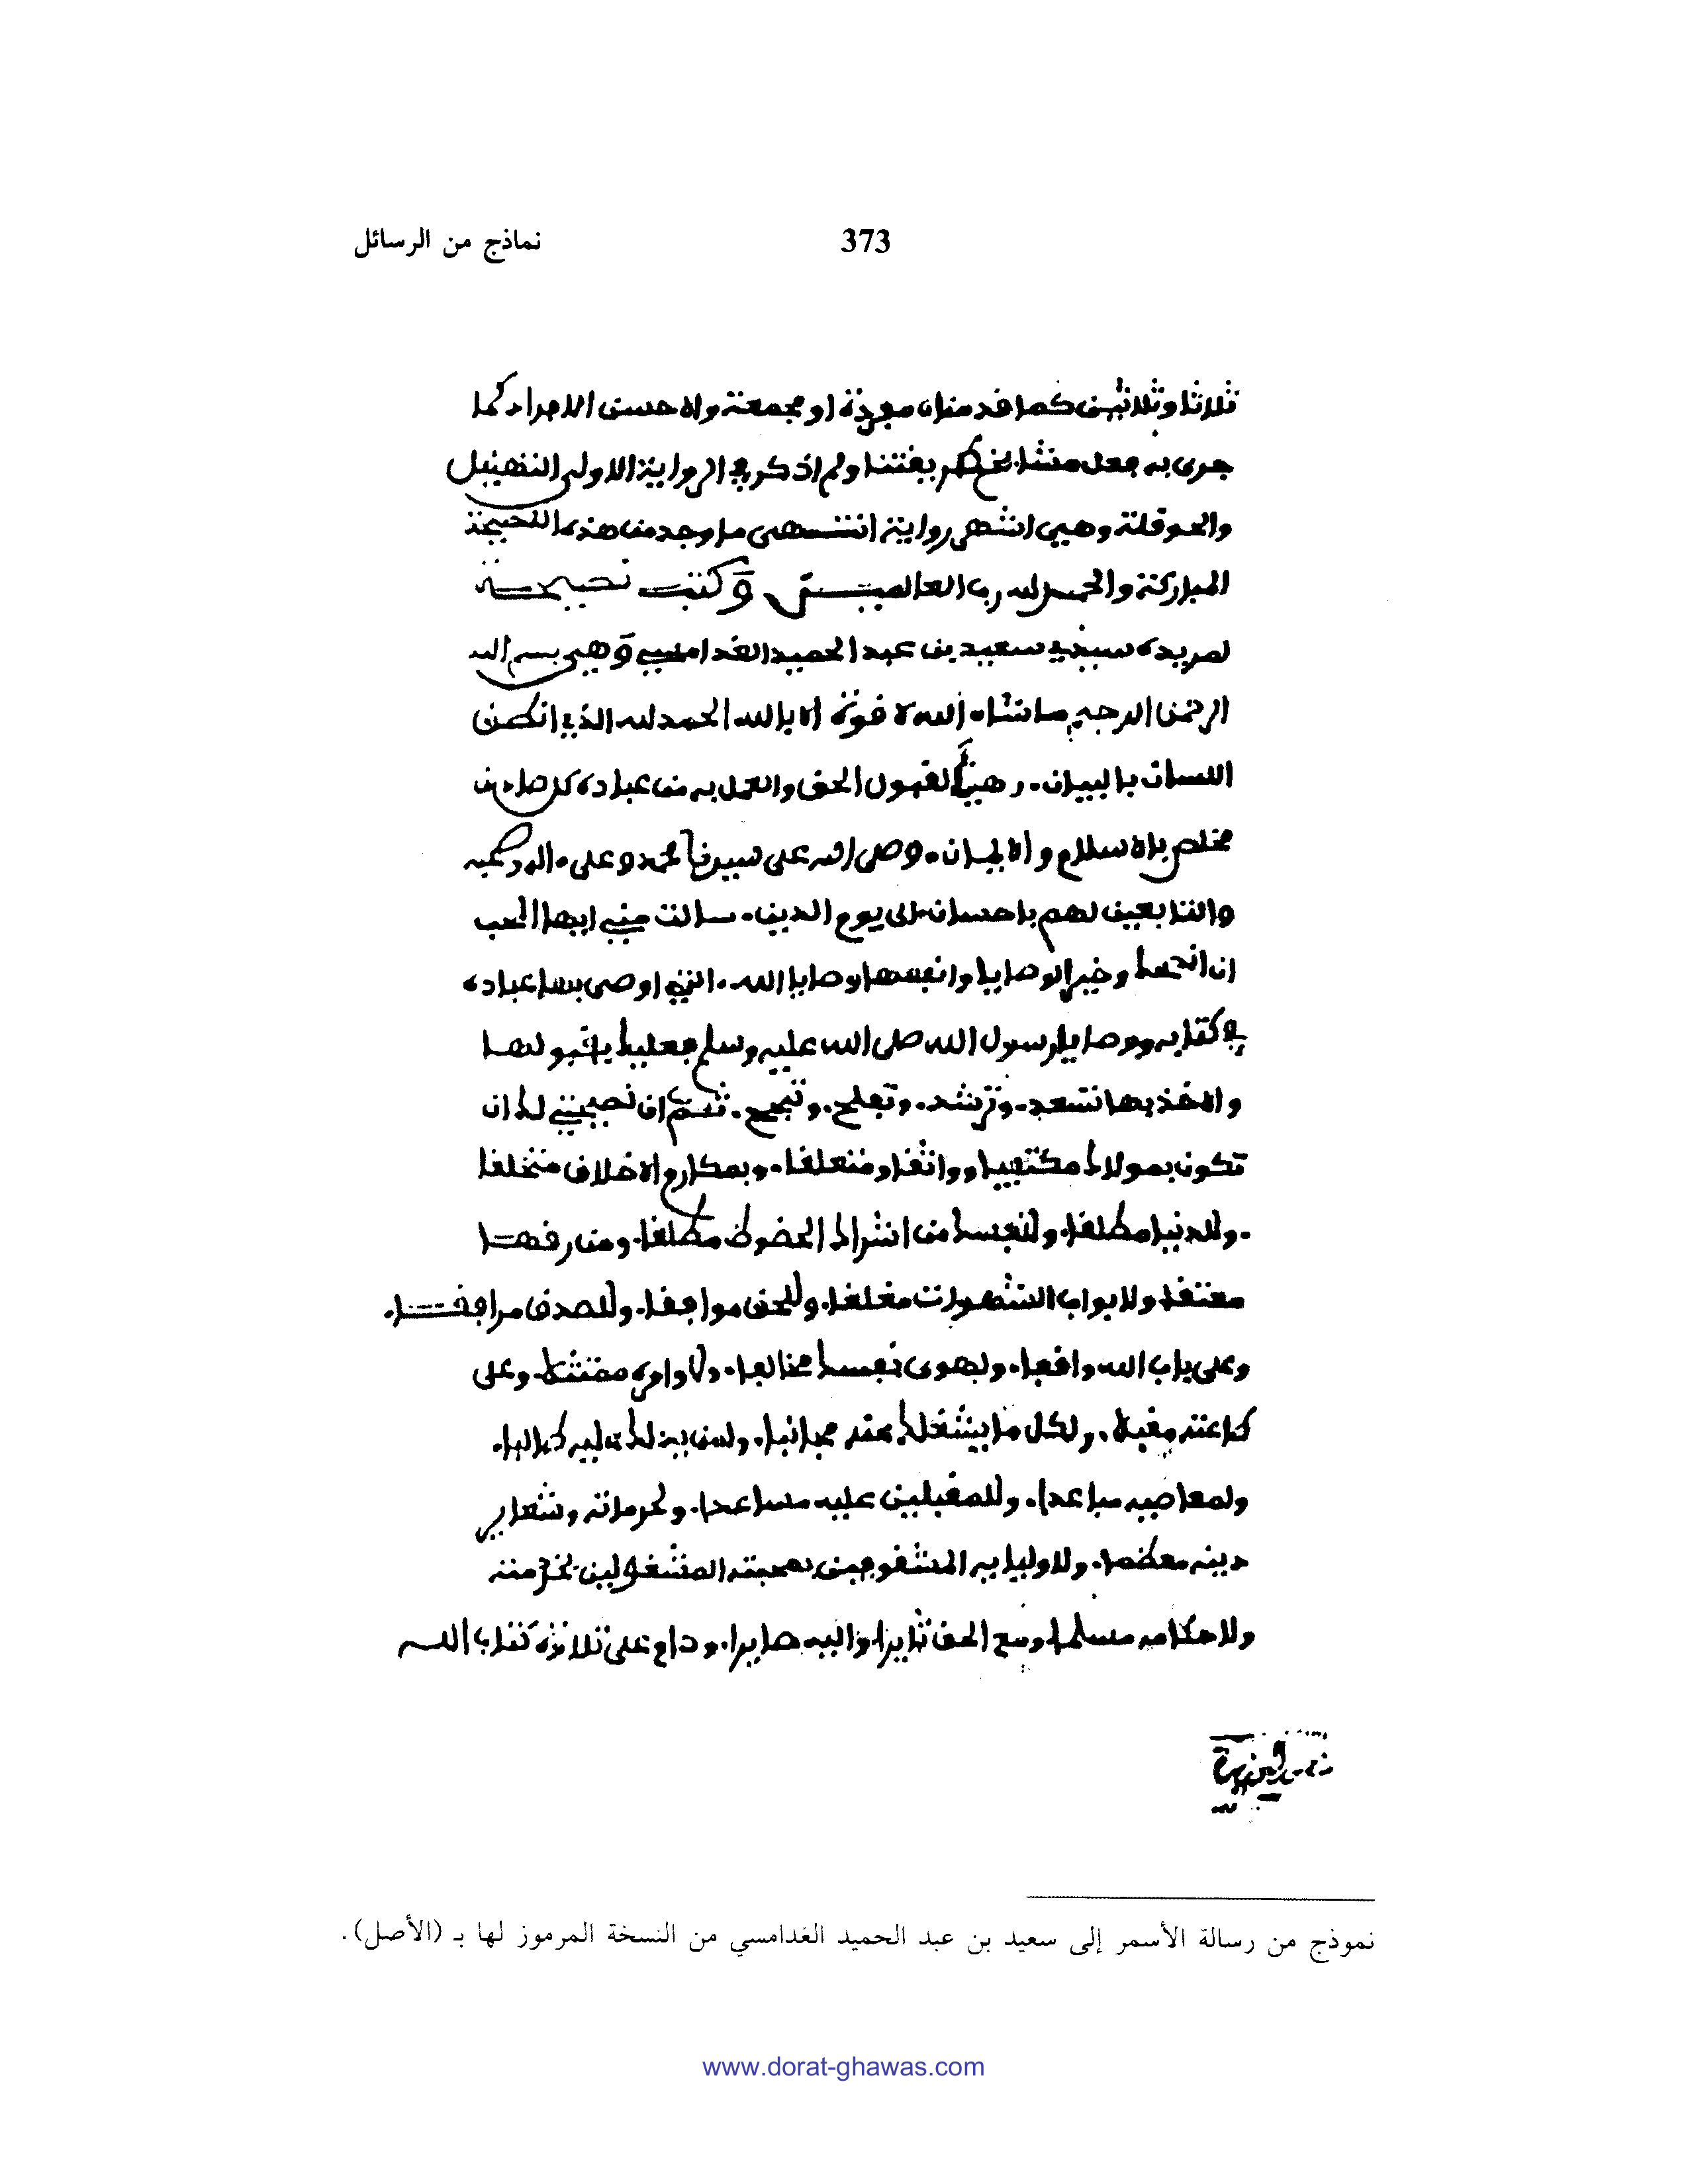 نماذج من الرسائل
373
ثلاثا وثلاثين كما قدمناه مفردة او مجمعة والاحسن الافراد كما
جرى به فعل مشايخ طريقتنا ولم اذكر في الرواية الاولى التهليل
والحوقلة وهي اشهر رواية انتهى ما وجد من هذه النصيحة
المباركة والحمد لله رب العالمين وكتب نصيحة
لمريده سيدي سعيد بن عبد الحميد الغدامسي وهي بسم الله
الرحمن الرحيم ما شاء الله لا قوة الا بالله الحمد لله الذي انطق
اللسان بالبيان. لقبول الحق والعمل به من عباده كل
مخلص بالاسلام والايمان. وصلى الله على سيدنا محمد وعلى ءاله وصحبه
والتابعين لهم باحسان الى يوم الدين. سالت مني ايها المحب
ان انصحك وخير الوصايا وانفعها وصايا الله. التي اوصى بها عباده
في كتابه ووصايا رسول الله صلى الله عليه وسلم فعليك بقبولها
والاخذ بها تسعد. وترشد. وتفلح. وتنجح. ثم ان نصيحتي لك ان
تكون بمولاك مكتفيا وواثقا ومتعلقا. وبمكارم الاخلاق متخلقا
. وللدنيا مطلقا. ولنفسك من اشراك الحضوض مطلقا. ومن رقها
معتقا ولابواب الشهوات مغلقا. وللحق موافقا. وللصدق مرافقا.
وعلى باب الله واقفا. ولهوى نفسك مخالفا. ولاوامره ممتثلا. وعلى
طاعته مقبلا. ولكل ما يشغلك عنه مجانبا. ولمن يدلك عليه طالبا.
ولمعاصيه مباعدا. وللمقبلين عليه مساعدا. ولحرماته وشعاير
دينه معظما. ولاوليايه المشغوفين بمحبته المشغولين بخدمته
ولاحكامه مسلما ومع الحق دايرا واليه صايرا. وداوم على تلاوة كتاب الله
نموذج من رسالة الأسمر إلى سعيد بن عبد الحميد الغدامسي من النسخة المرموز لها بـ (الأصل).
www.dorat-ghawas.com